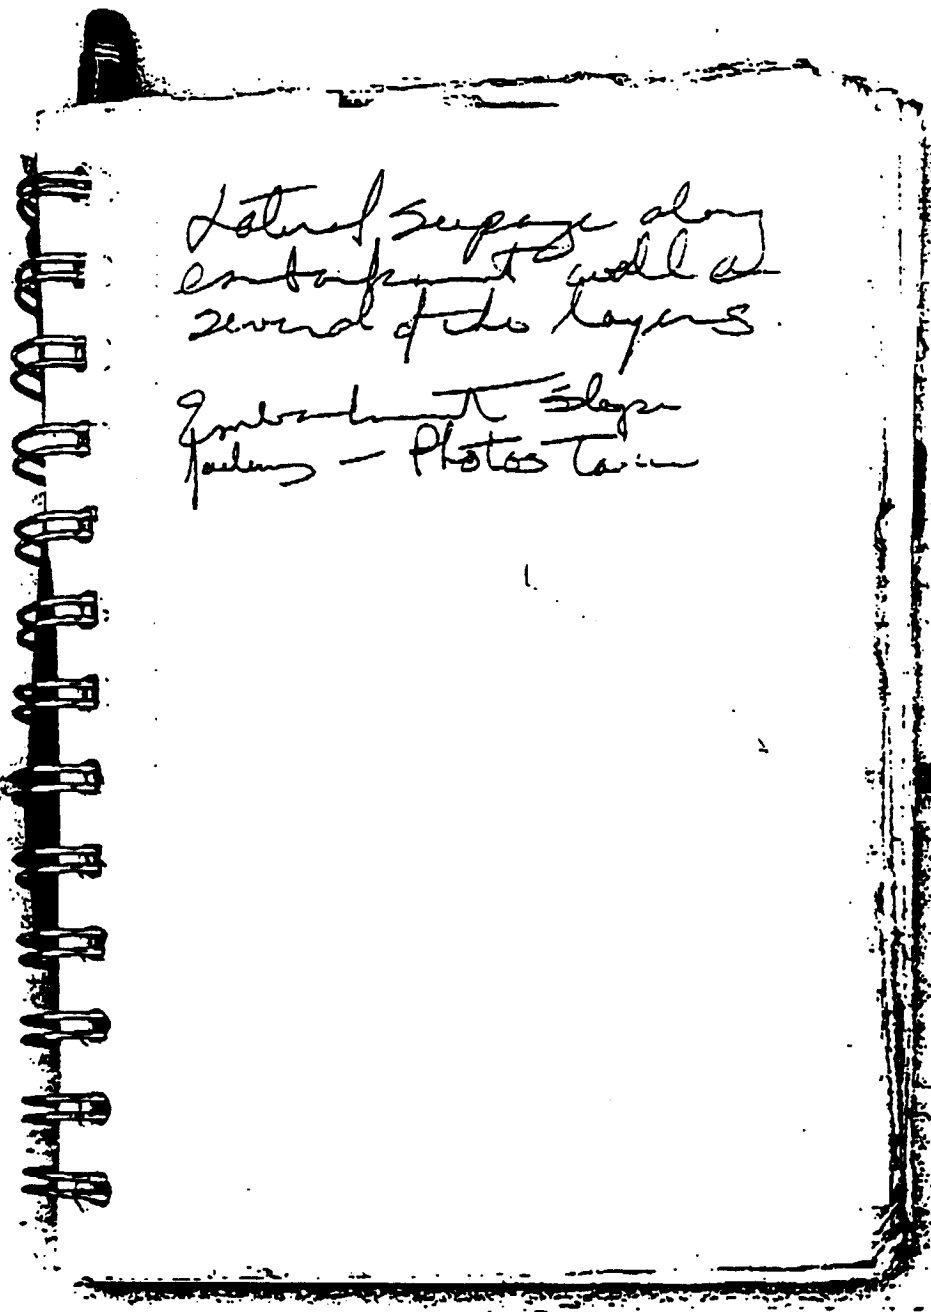 Lateral Seepage along
embankment wall a
several of the layers
Embankment Slope
— Photos Taken